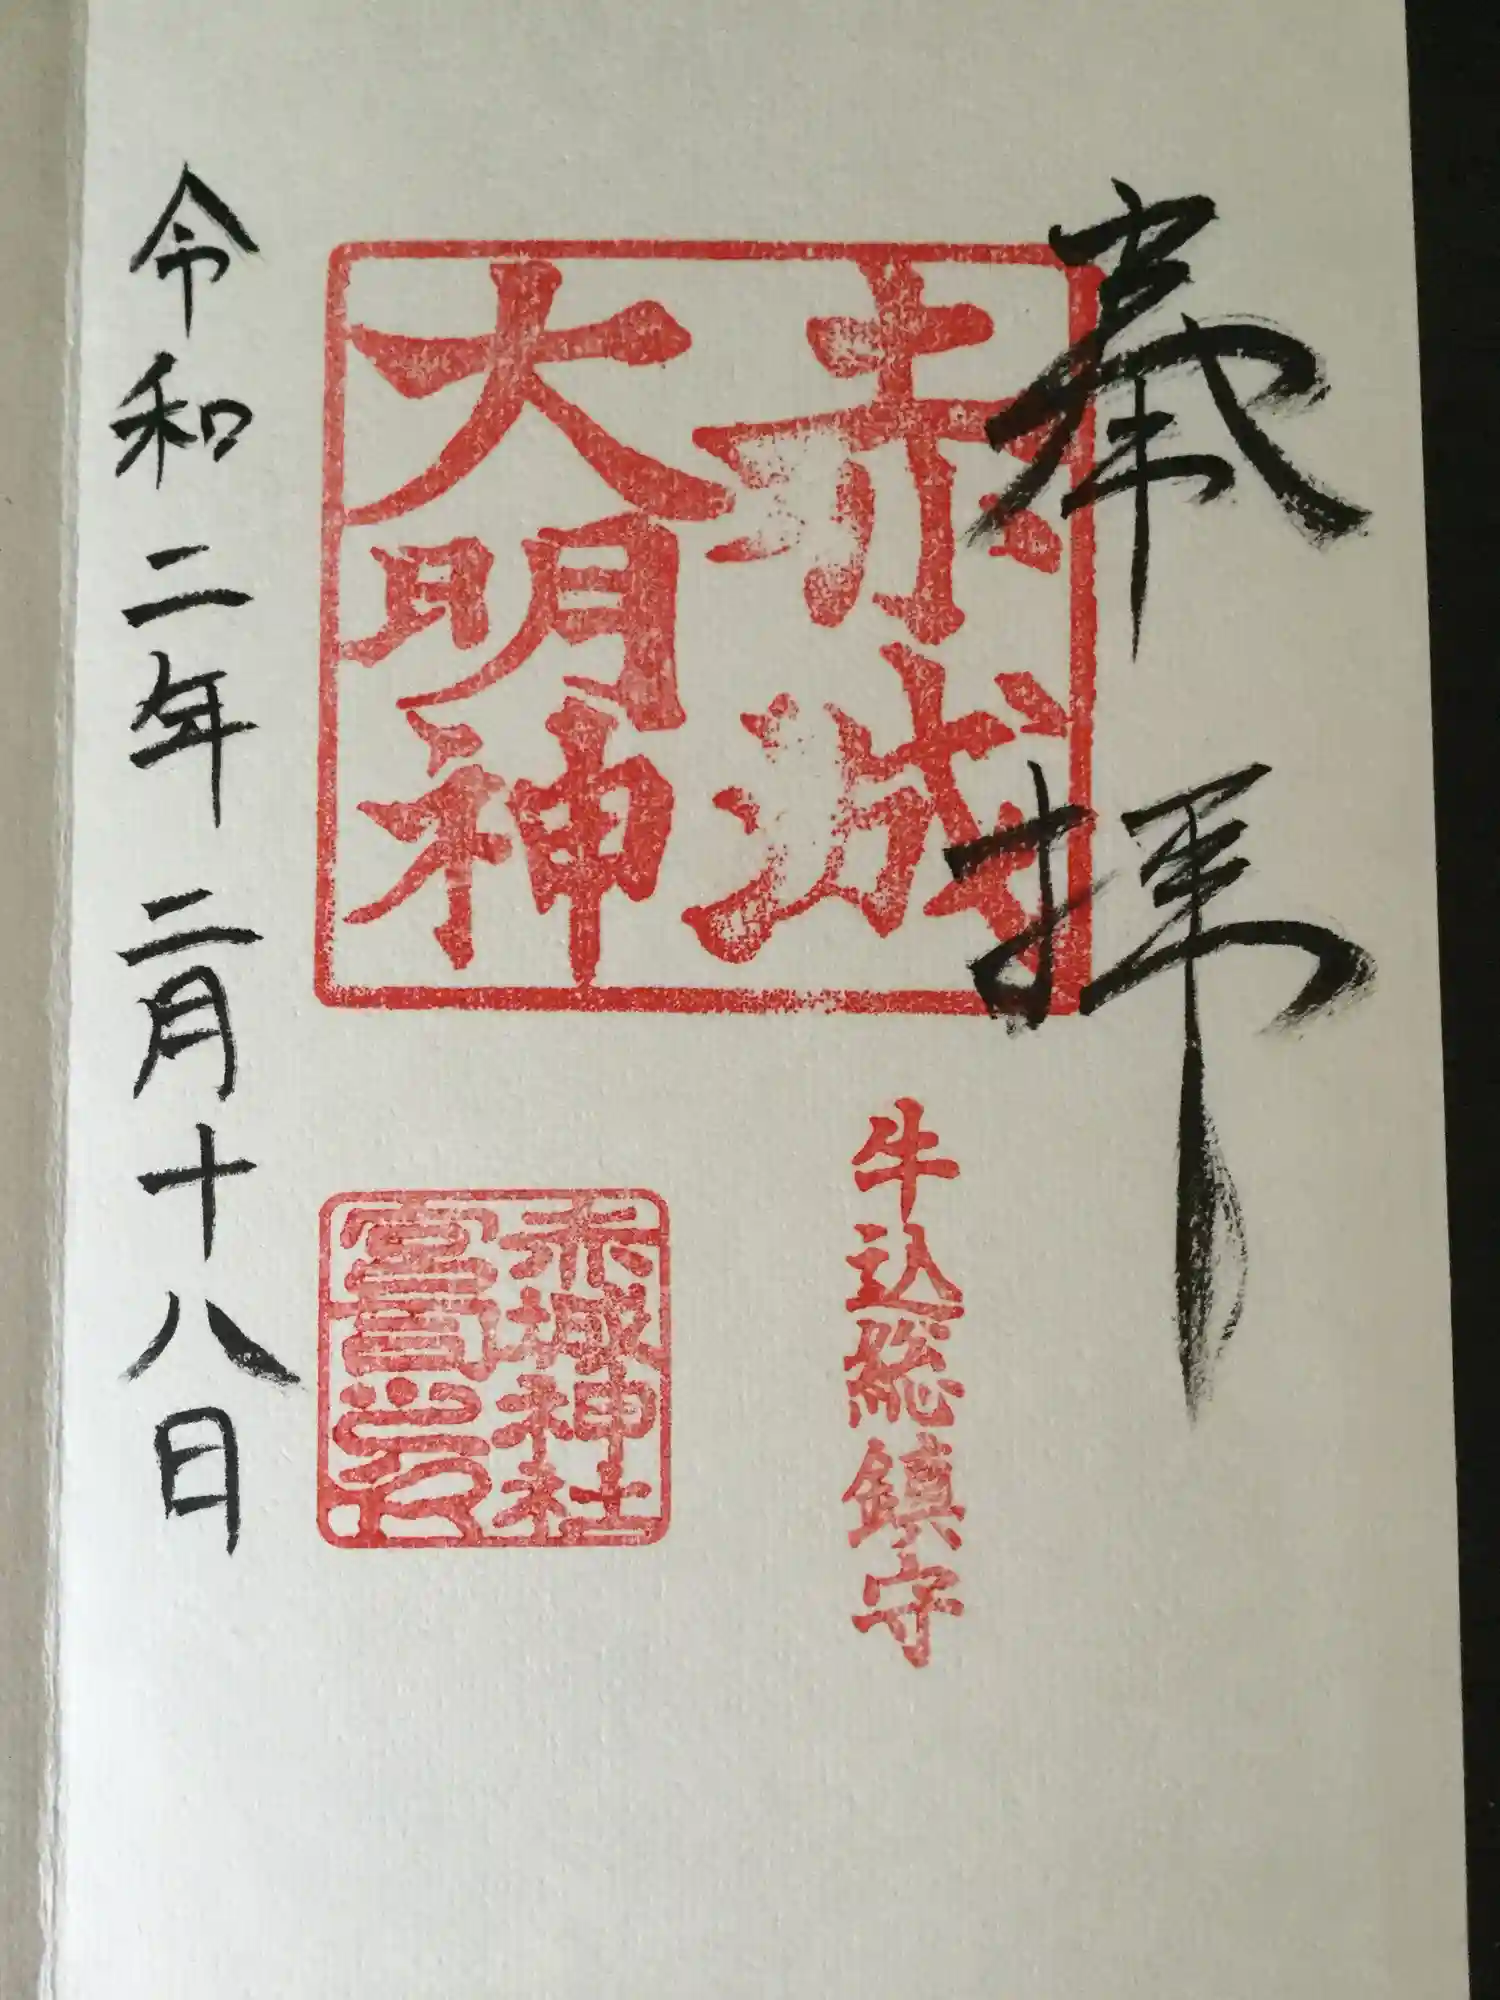 奉拝
赤城
大明神
牛込総鎮守
赤城神社
宮司之印
令和二年二月十八日